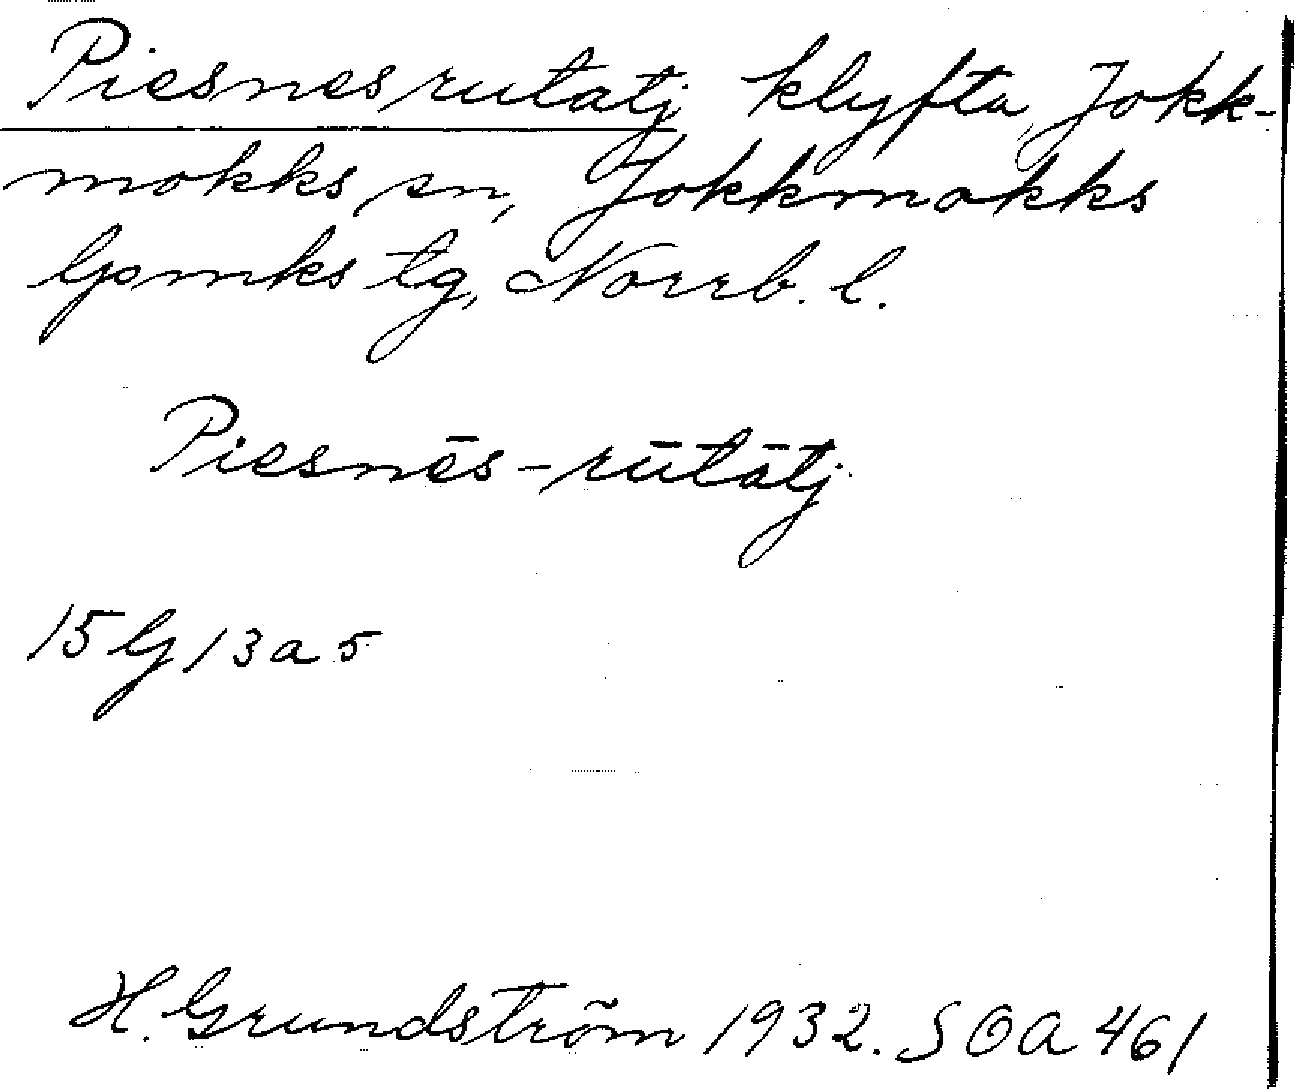 Piesnesrutatj, klyfta, Jokk-
mokks sn, Jokkmokks
lpmks tg, Norrb. l.
Piesnēs-rūtātj
15 G 13 a 5
H. Grundström 1932. SOA 461